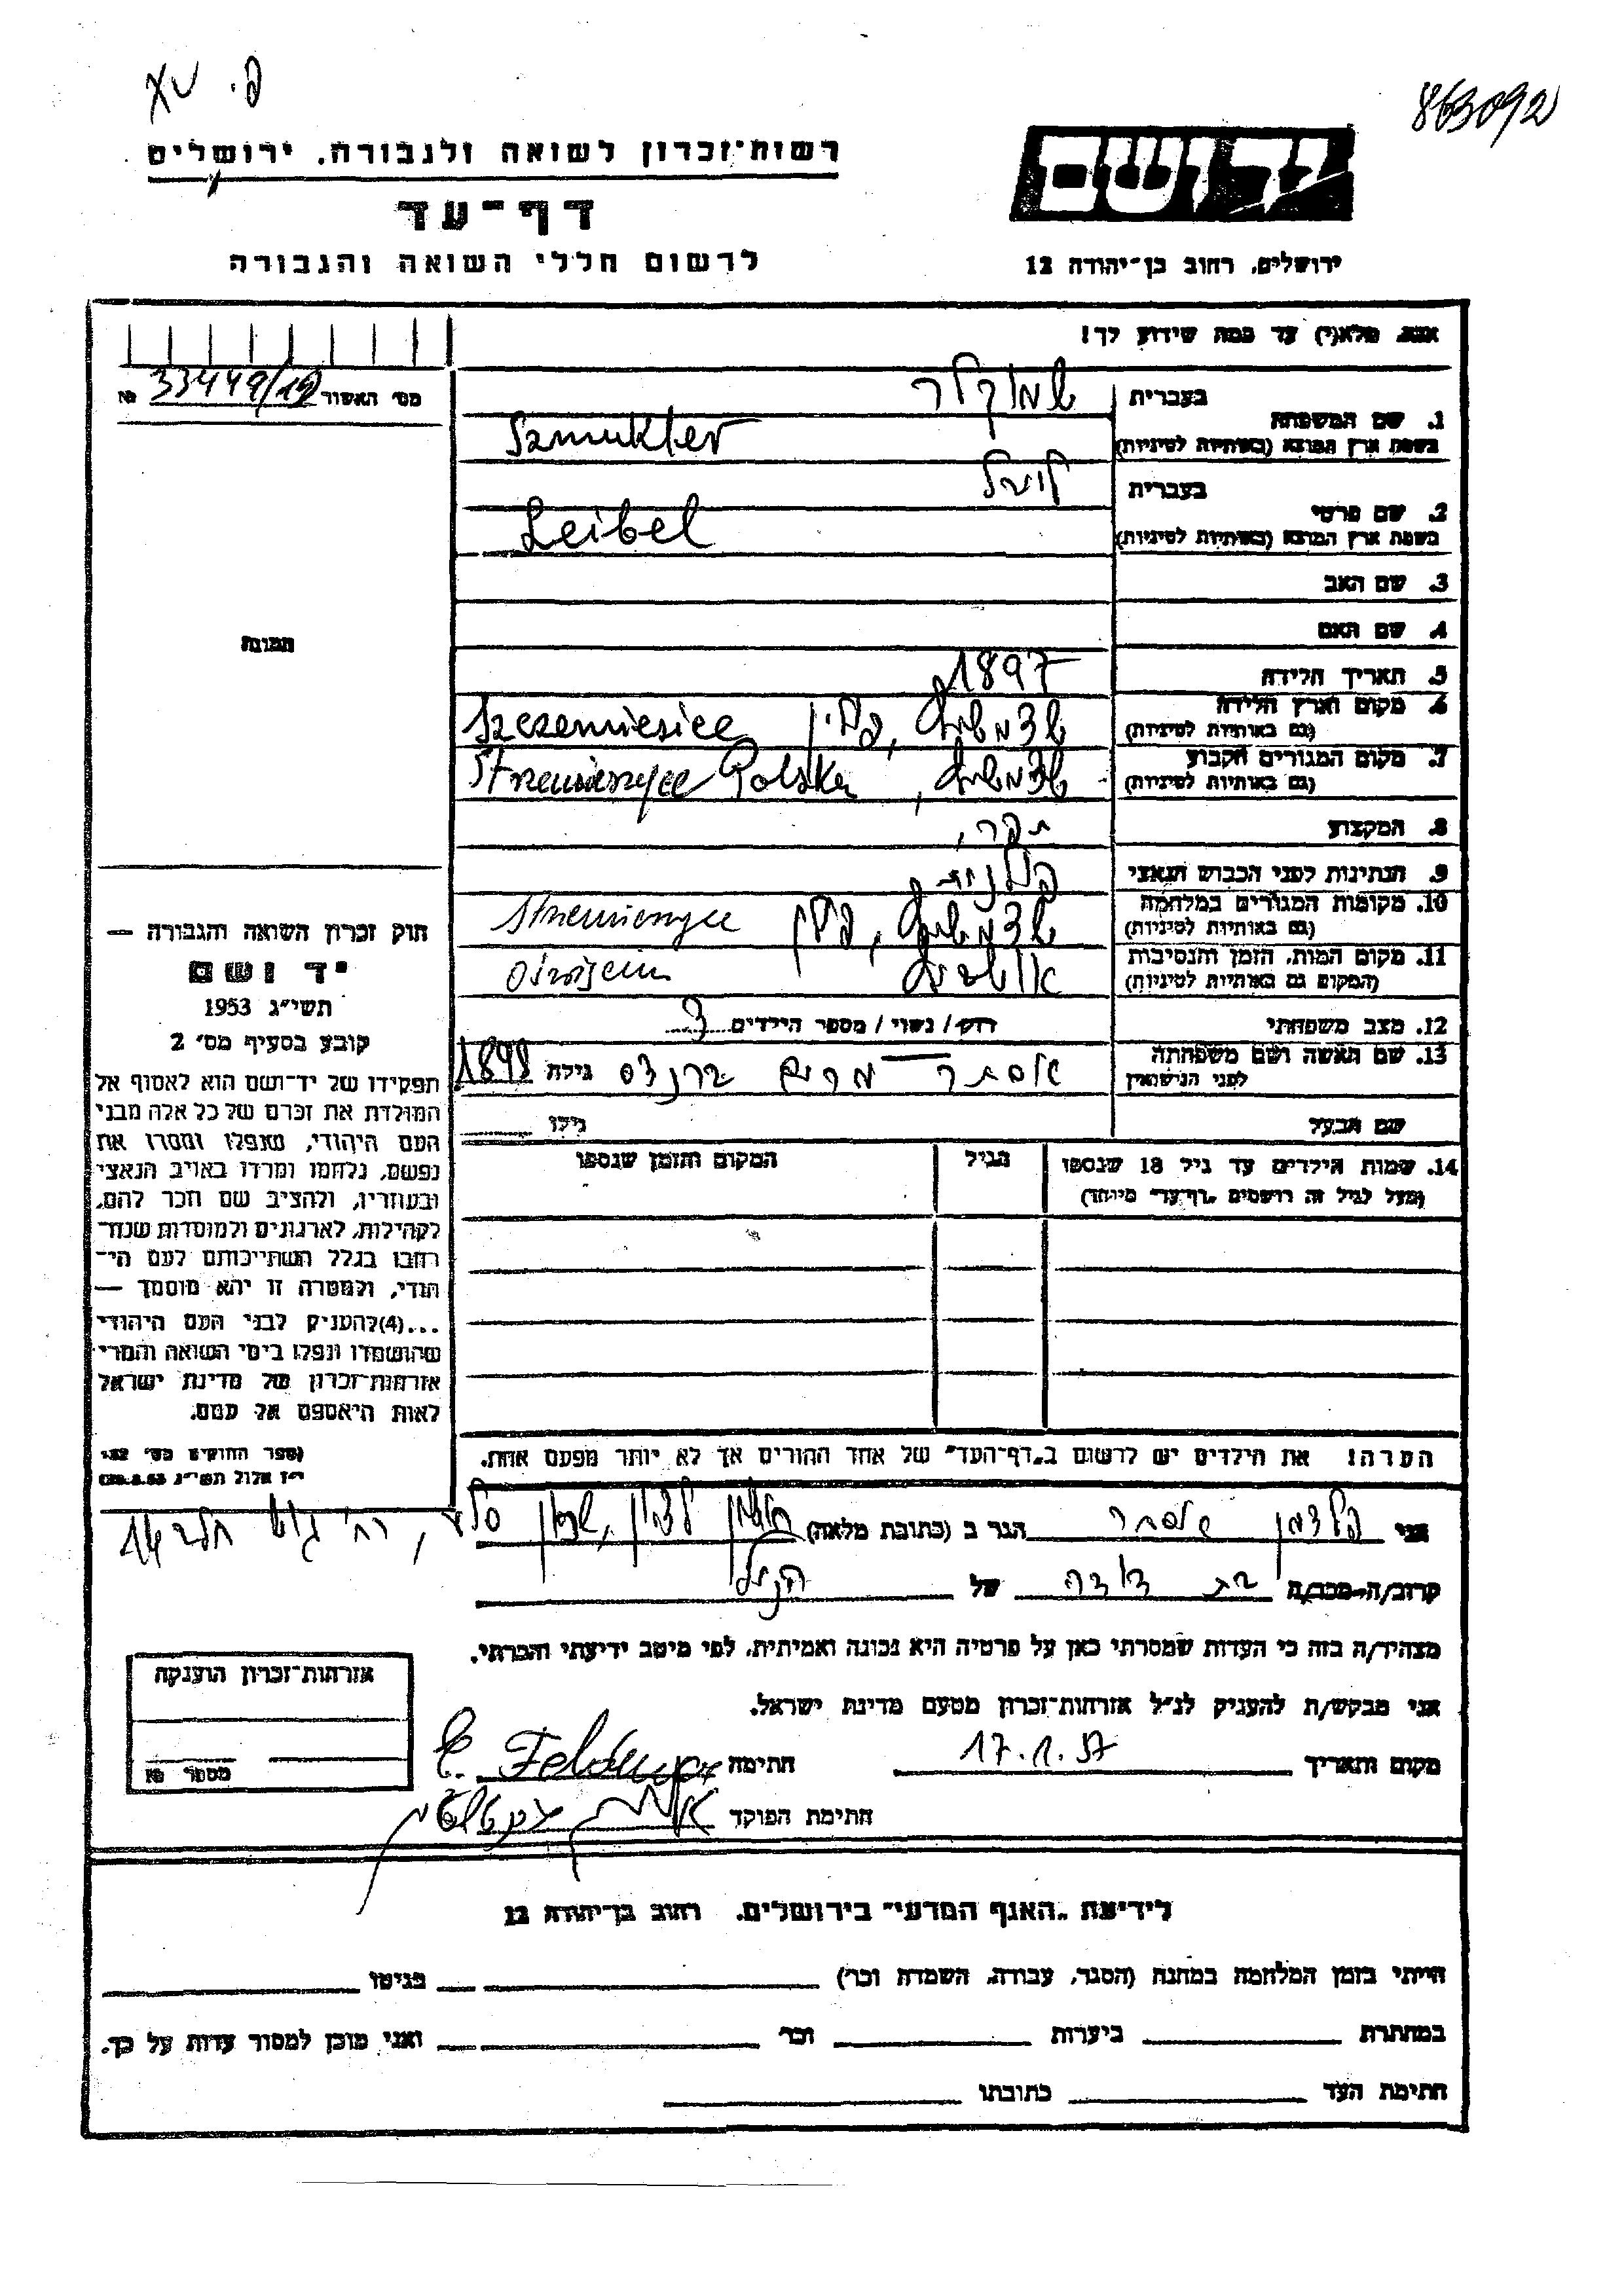 863092
רשות־זכרון לשואה ולגבורה, ירושלים
דף־עד
לרשום חללי השואה והגבורה
יד ושם
ירושלים, רחוב בן־יהודה 12
אנא, מלא(י) עד כמה שידוע לך!
מס׳ האשור 33449/19 №
1. שם המשפחה
בעברית שמוקלר
בשפת ארץ המוצא (באותיות לטיניות) Szmukler
2. שם פרטי
בעברית לייבל
בשפת ארץ המוצא (באותיות לטיניות) Leibel
3. שם האב
4. שם האם
5. תאריך הלידה 1897
6. מקום וארץ הלידה
(גם באותיות לטיניות) פולין
7. מקום המגורים הקבוע
(גם באותיות לטיניות) Polska
8. המקצוע
9. הנתינות לפני הכבוש הנאצי פולנית
10. מקומות המגורים במלחמה
(גם באותיות לטיניות) פולין
11. מקום המות, הזמן והנסיבות
(המקום גם באותיות לטיניות)
12. מצב משפחתי רווק / נשוי / מספר הילדים 3
13. שם האשה ושם משפחתה
לפני הנישואין אסתר מרים גילה 1898
שם הבעל גילו
14. שמות הילדים עד גיל 18 שנספו
(מעל לגיל זה רושמים „דף־עד” מיוחד)
הגיל
המקום והזמן שנספו
הערה! את הילדים יש לרשום ב„דף־העד” של אחד ההורים אך לא יותר מפעם אחת.
תמונה
חוק זכרון השואה והגבורה —
יד ושם
תשי״ג 1953
קובע בסעיף מס׳ 2
תפקידו של יד־ושם הוא לאסוף אל
המולדת את זכרם של כל אלה מבני
העם היהודי, שנפלו ומסרו את
נפשם, נלחמו ומרדו באויב הנאצי
ובעוזריו, ולהציב שם וזכר להם,
לקהילות, לארגונים ולמוסדות שנח־
רבו בגלל השתייכותם לעם הי־
הודי, ולמטרה זו יהא מוסמך —
...(4)להעניק לבני העם היהודי
שהושמדו ונפלו בימי השואה והמרי
אזרחות־זכרון של מדינת ישראל
לאות היאספם אל עמם.
(ספר החוקים מס׳ 132
י״ז אלול תשי״ג 28.8.53)
אני פלדמן אסתר הגר ב (כתובת מלאה) ראשון לציון, 14
קרוב/ה-מכר/ה בת דודה של הנ״ל
מצהיר/ה בזה כי העדות שמסרתי כאן על פרטיה היא נכונה ואמיתית, לפי מיטב ידיעתי והכרתי.
אני מבקש/ת להעניק לנ״ל אזרחות־זכרון מטעם מדינת ישראל.
מקום ותאריך 17.1.57 חתימה E. Feldman
חתימת הפוקד
אזרחות־זכרון הוענקה
מספר №
לידיעת „האגף המדעי” בירושלים, רחוב בן־יהודה 12
הייתי בזמן המלחמה במחנה (הסגר, עבודה, השמדה וכו׳) בגיטו
במחתרת ביערות וכו׳ ואני מוכן למסור עדות על כך.
חתימת העד כתובתו